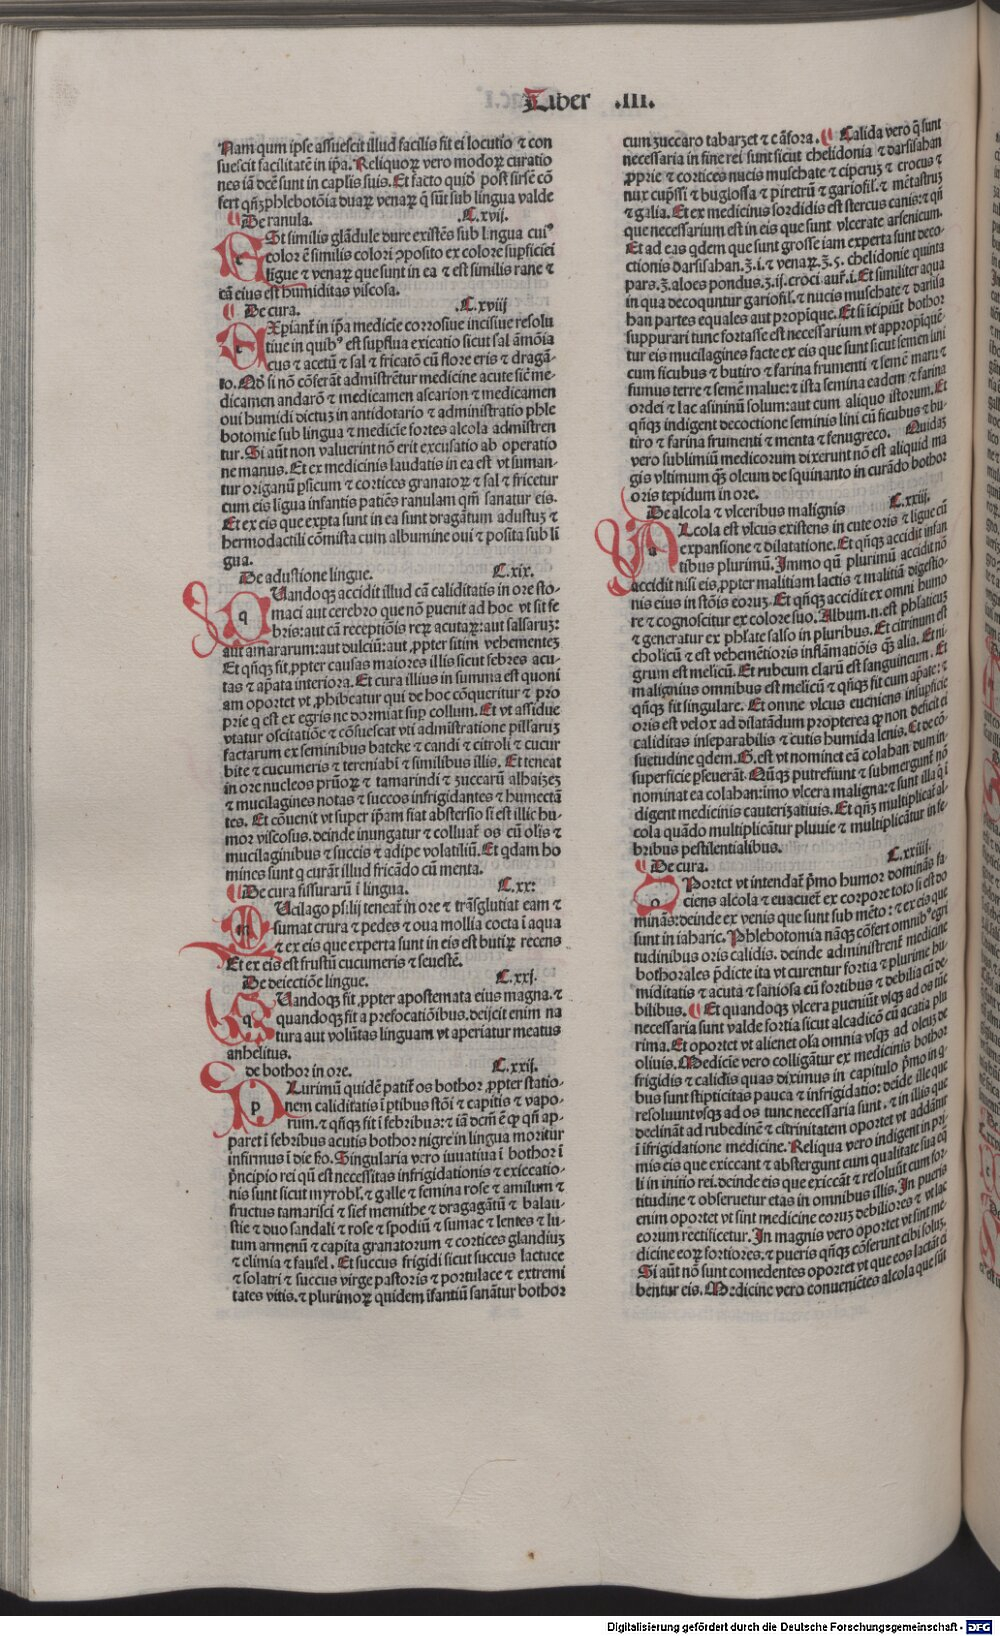 Liber .III.
Nam qum ipse assuescit illud facilis fit ei locutio ⁊ con
suescit facilitatē in ip̄a. Reliquoꝝ vero modoꝝ curatio
nes iā dcē sunt in caplis suis. Et facto quid post sirsē cō
fert qn̄ꝫ phlebotōia duaꝝ venaꝝ q̄ sūt sub lingua valde
De ranula. .C.xvij.
ESt similis glādule dure existēs sub lingua cuiꝰ
color ē similis colori ꝯposito ex colore supficiei
ligue ⁊ venaꝝ que sunt in ea ⁊ est similis rane ⁊
cā eius est humiditas viscosa.
De cura. .C.xviij
EXpiant̄ in ip̄a medicīe corrosiue incisiue resolu
tiue in quibꝰ est supflua exicatio sicut sal āmōia
cus ⁊ acetū ⁊ sal ⁊ fricatō cū flore eris ⁊ dragā-
to. Aꝺ si nō cōferāt admistrētur medicine acute sicē me-
dicamen andarō ⁊ medicamen ascarion ⁊ medicamen
oui humidi dictuꝫ in antidotario ⁊ administratio phle
botomie sub lingua ⁊ medicīe fortes alcola admistren
tur. Si aūt non valuerint nō erit excusatio ab operatio
ne manus. Et ex medicinis laudatis in ea est vt suman-
tur origanū ꝑsicum ⁊ cortices granatoꝝ ⁊ sal ⁊ fricetur
cum eis ligua infantis patiēs ranulam qm̄ sanatur eis.
Et ex eis que expta sunt in ea sunt dragātum adustuꝫ ⁊
hermodactili cōmista cum albumine oui ⁊ posita sub li
gua.
De adustione lingue. C.xix.
QUandoqꝫ accidit illud cā caliditatis in ore sto-
maci aut cerebro que nō puenit ad hoc vt sit fe
bris: aut cā receptiōis reꝝ acutaꝝ: aut salsaruꝫ:
aut amararum: aut dulciū: aut ꝓpter sitim vehementeꝫ
Et qn̄qꝫ fit ꝓpter causas maiores illis sicut febres acu-
tas ⁊ apata interiora. Et cura illius in summa est quoni
am oportet vt ꝓhibeatur qui de hoc cōqueritur ⁊ pro
prie q est ex egris ne dormiat sup collum. Et vt assidue
vtatur oscitatiōe ⁊ cōsuescat vti admistratione pillaruꝫ
factarum ex seminibus batcke ⁊ candi ⁊ citroli ⁊ cucur
bite ⁊ cucumeris ⁊ tereniabi ⁊ similibus illis. Et teneat
in ore nucleos prūoꝝ ⁊ tamarindi ⁊ zuccarū alhaizeꝫ
⁊ mucilagines notas ⁊ succos infrigidantes ⁊ humectā
tes. Et cōuenit vt super ip̄am fiat abstersio si est illic hu-
mor viscosus. deinde inungatur ⁊ colluat̄ os cū olis ⁊
mucilaginibus ⁊ succis ⁊ adipe volatiliū. Et qdam ho
mines sunt q curāt illud fricādo cū menta.
De cura fissuraruꝫ ī lingua. C.xx:
MUcilago ps:lij teneat̄ in ore ⁊ trāsglutiat eam ⁊
sumat crura ⁊ pedes ⁊ oua mollia cocta ī aqua
⁊ ex eis que experta sunt in eis est butiꝝ recens
Et ex eis est frustū cucumeris ⁊ seuestē.
De deiectiōe lingue. C.xxj.
QUandoqꝫ fit ꝓpter apostemata eius magna. ⁊
quandoqꝫ fit a prefocatiōibus. deijcit enim na
tura aut volūtas linguam vt aperiatur meatus
anhelitus.
de bothor in ore. C.xxij.
PLurimū quidē patit̄ os bothor ꝓpter statio-
nem caliditatis ī ꝑtibus stōi ⁊ capitis ⁊ vapo-
rum. ⁊ qn̄qꝫ fit ī febribus: ⁊ iā dcm̄ ē ꝙ qn̄ ap-
paret ī febribus acutis bothor nigre in lingua moritur
infirmus ī die ſcꝺo. Singularia vero iuuatiua ī bothor ī
prīncipio rei qn̄ est necessitas infrigidationis ⁊ exiccatio-
nis sunt sicut myrobl. ⁊ galle ⁊ semina rose ⁊ amilum ⁊
fructus tamarisci ⁊ sief memithe ⁊ dragagātū ⁊ balau-
stie ⁊ duo sandali ⁊ rose ⁊ spodiū ⁊ sumac ⁊ lentes ⁊ lu-
tum armenū ⁊ capita granatorum ⁊ cortices glandiuꝫ
⁊ climia ⁊ faufel. Et succus frigidi sicut succus lactuce
⁊ solatri ⁊ succus virge pastoris ⁊ portulace ⁊ extremi
tates vitis. ⁊ plurimoꝝ quidem īfantiū sanātur bothor
cum zuccaro tabarzet ⁊ cāfora. Calida vero q̄ sunt
necessaria in fine rei sunt sicut chelidonia ⁊ darsisahan
ꝓprie ⁊ cortices nucis muschate ⁊ ciperuꝫ ⁊ crocus ⁊
nux cupssi ⁊ buglossa ⁊ piretrū ⁊ gariofil. ⁊ mētastruꝫ
⁊ galia. Et ex medicinis sordidis est stercus canis: ⁊ qn̄
que necessarium est in eis que sunt vlcerate arsenicum.
Et ad eas qdem que sunt grosse iam experta sunt deco-
ctionis darsisahan. ʒ.i. ⁊ venaꝝ. ʒ.5. chelidonie quinta
pars. ʒ. aloes pondus. ʒ.ij. croci aur̄.i. Et similiter aqua
in qua decoquntur gariofil. ⁊ nucis muschate ⁊ darsisa
han partes equales aut propīque. Et si īcipiūt bothor
suppurari tunc fortasse est necessarium vt appropīque-
tur eis mucilagines facte ex eis que sunt sicut semen lini
cum ficubus ⁊ butiro ⁊ farina frumenti ⁊ semē maru ⁊
fumus terre ⁊ semē malue: ⁊ ista semina eadem ⁊ farina
ordei ⁊ lac asininū solum: aut cum aliquo istorum. Et
qn̄qꝫ indigent decoctione seminis lini cū ficubus ⁊ bu-
tiro ⁊ farina frumenti ⁊ menta ⁊ fenugreco. Quidaꝫ
vero sublimiū medicorum dixerunt nō est aliquid ma
gis vltimum qꝫ oleum de squinanto in curādo bothor
oris tepidum in ore.
De alcola ⁊ vlceribus malignis C.xxiij.
ALcola est vlcus existens in cute oris ⁊ ligue cū
expansione ⁊ dilatatione. Et qn̄qꝫ accidit infan
tibus plurimū. Immo qn̄ plurimū accidit nō
accidit nisi eis ꝓpter malitiam lactis ⁊ malitiā digestio-
nis eius in stōis eoruꝫ. Et qn̄qꝫ accidit ex omni humo
re ⁊ cognoscitur ex colore suo. Album.n. est phlaticuꝫ
⁊ generatur ex phlate salso in pluribus. Et citrinum est
cholicū ⁊ est vehemētioris inflāmatiōis qꝫ alia. Et ni-
grum est melicū. Et rubeum clarū est sanguineum. Et
malignius omnibus est melicū ⁊ qn̄qꝫ fit cum apate: ⁊
qn̄qꝫ fit singulare. Et omne vlcus eueniens insupficie
oris est velox ad dilatādum propterea ꝙ non deficit ei
caliditas inseparabilis ⁊ cutis humida lenis. Et de cō-
suetudine qdem. G. est vt nominet eā colahan dum in
superficie ꝑseuerāt. Nūqꝫ putrefiunt ⁊ submergunt̄ nō
nominat ea colahan: imo vlcera maligna: ⁊ sunt illa q̄ ī
digent medicinis cauterizatiuis. Et qn̄ꝫ multiplicat̄ al-
cola quādo multiplicātur pluuie ⁊ multiplicātur in fe
bribus pestilentialibus.
De cura. C.xxiiij.
OPortet vt intendat̄ pͥmo humor dominās fa-
ciens alcola ⁊ euacuet̄ ex corpore toto si est do
minās: deinde ex venis que sunt sub mēto: ⁊ ex eis que
sunt in iaharic. Phlebotomia nāqꝫ cōfert omnibꝰ egri
tudinibus oris calidis. deinde administrent̄ medicine
bothorales p̄dicte ita vt curentur fortia ⁊ plurime hu
miditatis ⁊ acuta ⁊ saniosa cū fortibus ⁊ debilia cū de-
bilibus. Et quandoqꝫ vlcera pueniūt vsqꝫ ad os tūc
necessaria sunt valde fortia sicut alcadicō cū acatia plu
rima. Et oportet vt alienet ola omnia vsqꝫ ad oleuꝫ de
oliuis. Medicīe vero colligātur ex medicinis bothor
frigidis ⁊ calidis quas diximus in capitulo pͥmo in q-
bus sunt stipticitas pauca ⁊ infrigidatio: deide ille que
resoluunt vsqꝫ ad os tunc necessaria sunt. ⁊ in illis que
declināt ad rubedinē ⁊ citrinitatem oportet vt addāt̄ur
ī īfrigidatione medicine. Reliqua vero indigent in pri
mis eis que exiccant ⁊ abstergunt cum qualitate sua eq
li in initio rei. deinde eis que exiccāt ⁊ resoluūt cum for-
titudine ⁊ obseruetur etas in omnibus illis. In pueris
enim oportet vt sint medicine eoruꝫ debiliores ⁊ vt lac
eorum rectificetur. In magnis vero oportet vt sint me-
dicine eoꝝ fortiores: ⁊ pueris qn̄qꝫ cōferunt cibi soluꝫ.
Si aūt nō sunt comedentes oportet vt que eos lactāt ci
bentur eis. Medicine vero conueniētes alcola que sūt
Digitalisierung gefördert durch die Deutsche Forschungsgemeinschaft - DFG